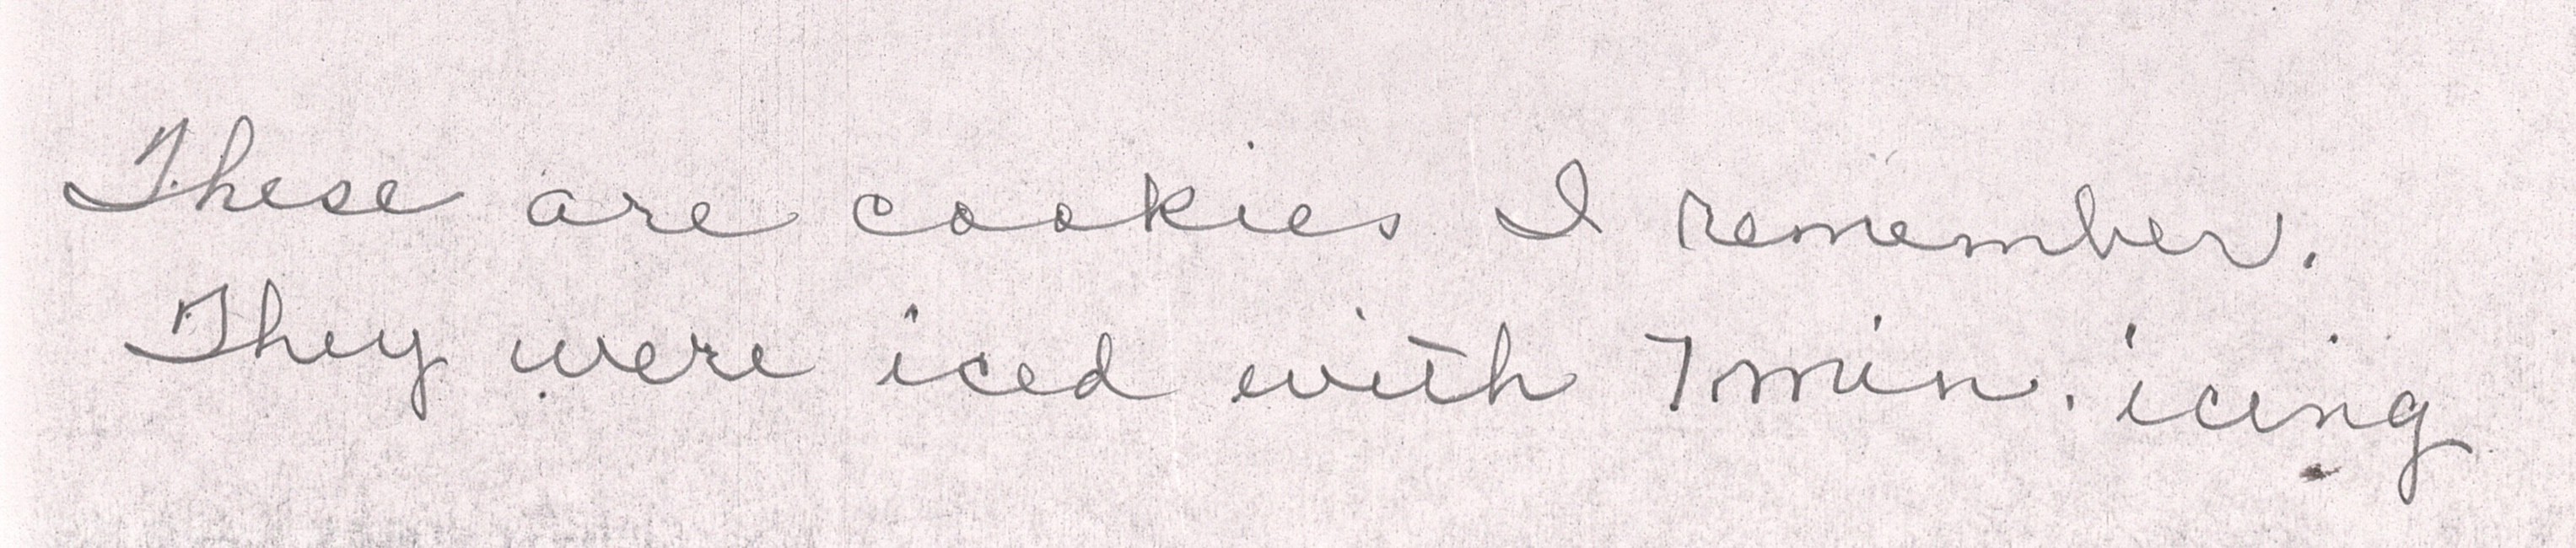 These are cookies I remember.
They were iced with 7 min. icing